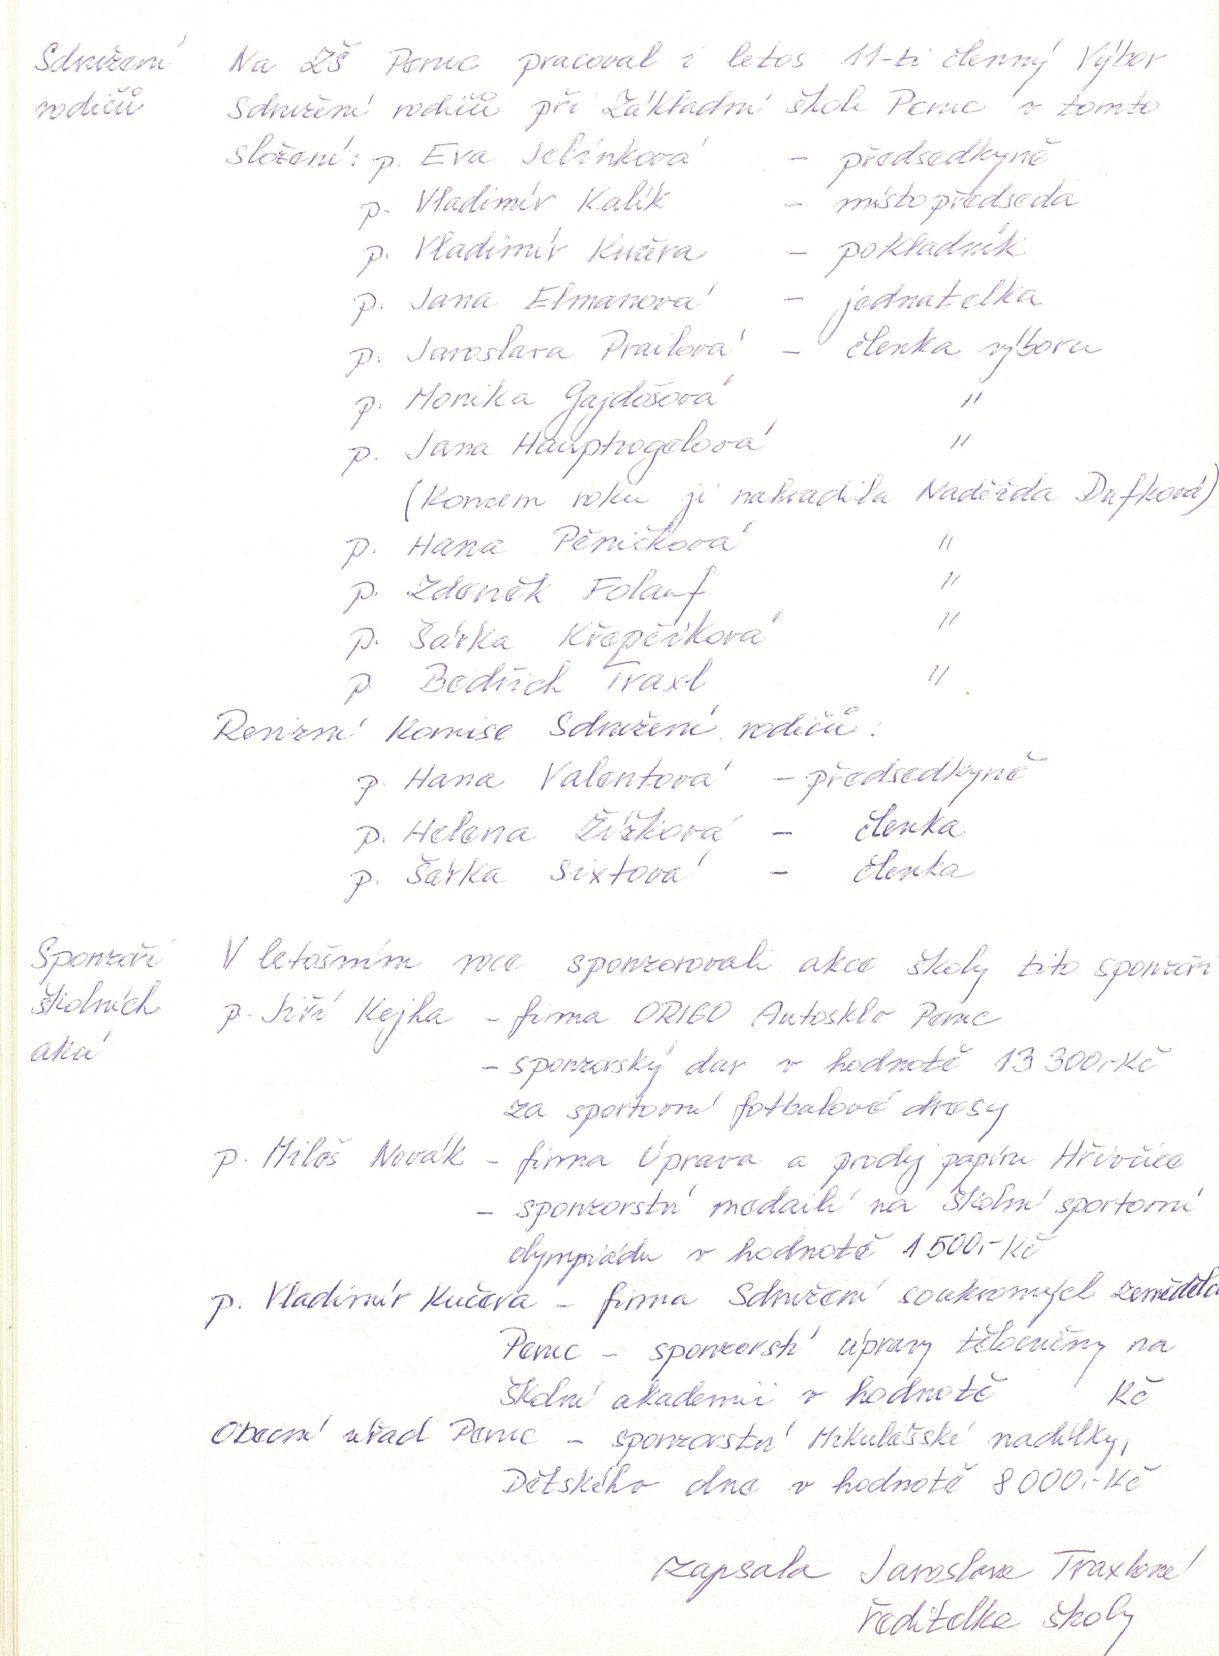 Sdružení Na ZŠ Peruc pracoval i letos 11-ti členný Výbor
rodičů Sdružení rodičů při Základní škole Peruc v tomto
složení: p. Eva Jelínková - předsedkyně
p. Vladimír Kalík - místopředseda
p. Vladimír Kučera - pokladník
p. Jana Elmanová - jednatelka
p. Jaroslava Prailová - členka výboru
p. Monika Gajdošová "
p. Jana Hauptvogelová "
(koncem roku ji nahradila Naděžda Dufková)
p. Hana Pěničková "
p. Zdeněk Folauf "
p. Šárka Křepčíková "
p. Bedřich Traxl "
Revizní komise Sdružení rodičů:
p. Hana Valentová - předsedkyně
p. Helena Žížková - členka
p. Šárka Sixtová - členka
Sponzoři V letošním roce sponzorovali akce školy tito sponzoři
školních p. Jiří Kejha - firma ORIGO Autosklo Peruc
akcí - sponzorský dar v hodnotě 13 300,-Kč
za sportovní fotbalové dresy
p. Miloš Novák - firma Úprava a prodej papíru Hřivčice
- sponzorství medailí na školní sportovní
olympiádu v hodnotě 1 500,- Kč
p. Vladimír Kučera - firma Sdružení soukromých
Peruc - sponzorství úpravy tělocvičny na
školní akademii v hodnotě Kč
Obecní úřad Peruc - sponzorství Mikulášské nadílky,
Dětského dne v hodnotě 8 000,- Kč
zapsala Jaroslava Traxlová
ředitelka školy